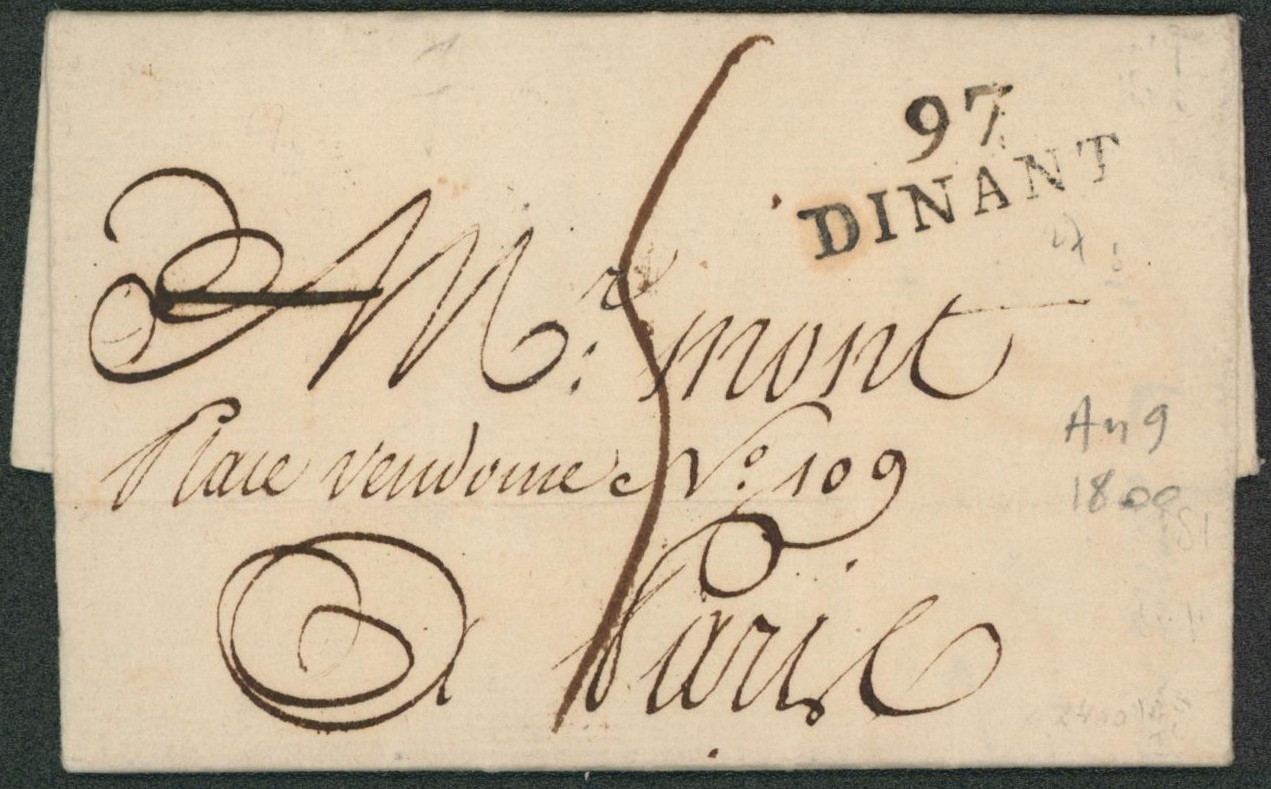 97
DINANT
A Mr: mont
Place vendome No 109
A Paris
An 9
1800